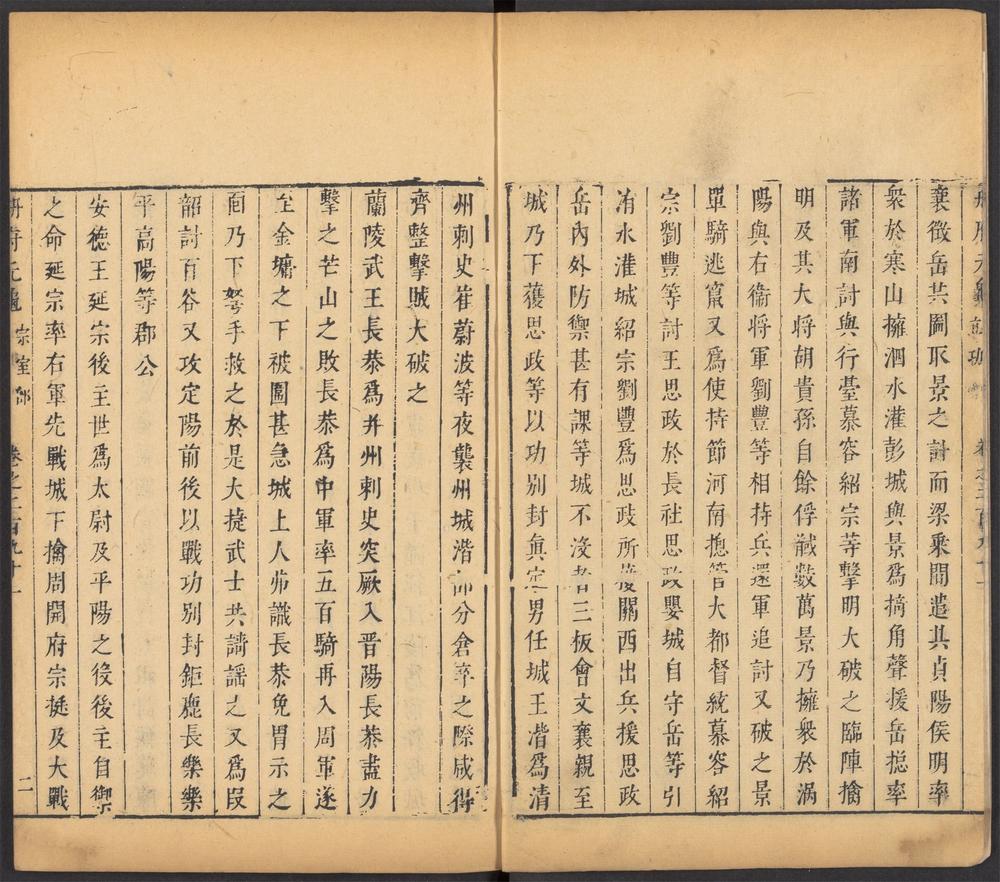 襄徵岳共圖取景之計而梁乗間遣其貞陽侯明率
衆於寒山擁泗水灌彭城與景爲掎角聲援岳揔率
諸軍南討與行臺慕容紹宗等擊明大破之臨陣擒
明及其大將胡貴孫自餘俘馘數萬景乃擁衆於渦
陽與右衞將軍劉豐等相持兵還軍追討又破之景
單騎逃竄又爲使持節河南揔管大都督統慕容紹
宗劉豐等討王思政於長社思政嬰城自守岳等引
洧水灌城紹宗劉豐爲思政所獲關西出兵援思政
岳内外防禦甚有謀等城不没者三板會文襄親至
城乃下獲思政等以功別封眞定男任城王湝爲清
州刺史崔蔚波等夜襲州城湝部分倉卒之際咸得
齊整擊賊大破之
蘭陵武王長恭爲并州刺史突厥入晋陽長恭盡力
擊之芒山之敗長恭爲中軍率五百騎再入周軍遂
至金墉之下被圍甚急城上人弗識長恭免胄示之
面乃下弩手救之於是大捷武士共謌謡之又爲叚
韶討百谷又攻定陽前後以戰功别封鉅鹿長樂樂
平高陽等郡公
安德王延宗後主世爲太尉及平陽之後後主自禦
之命延宗率右軍先戰城下擒周開府宗挺及大戰
冊府元龜 宗室部 卷之二百九十一 二